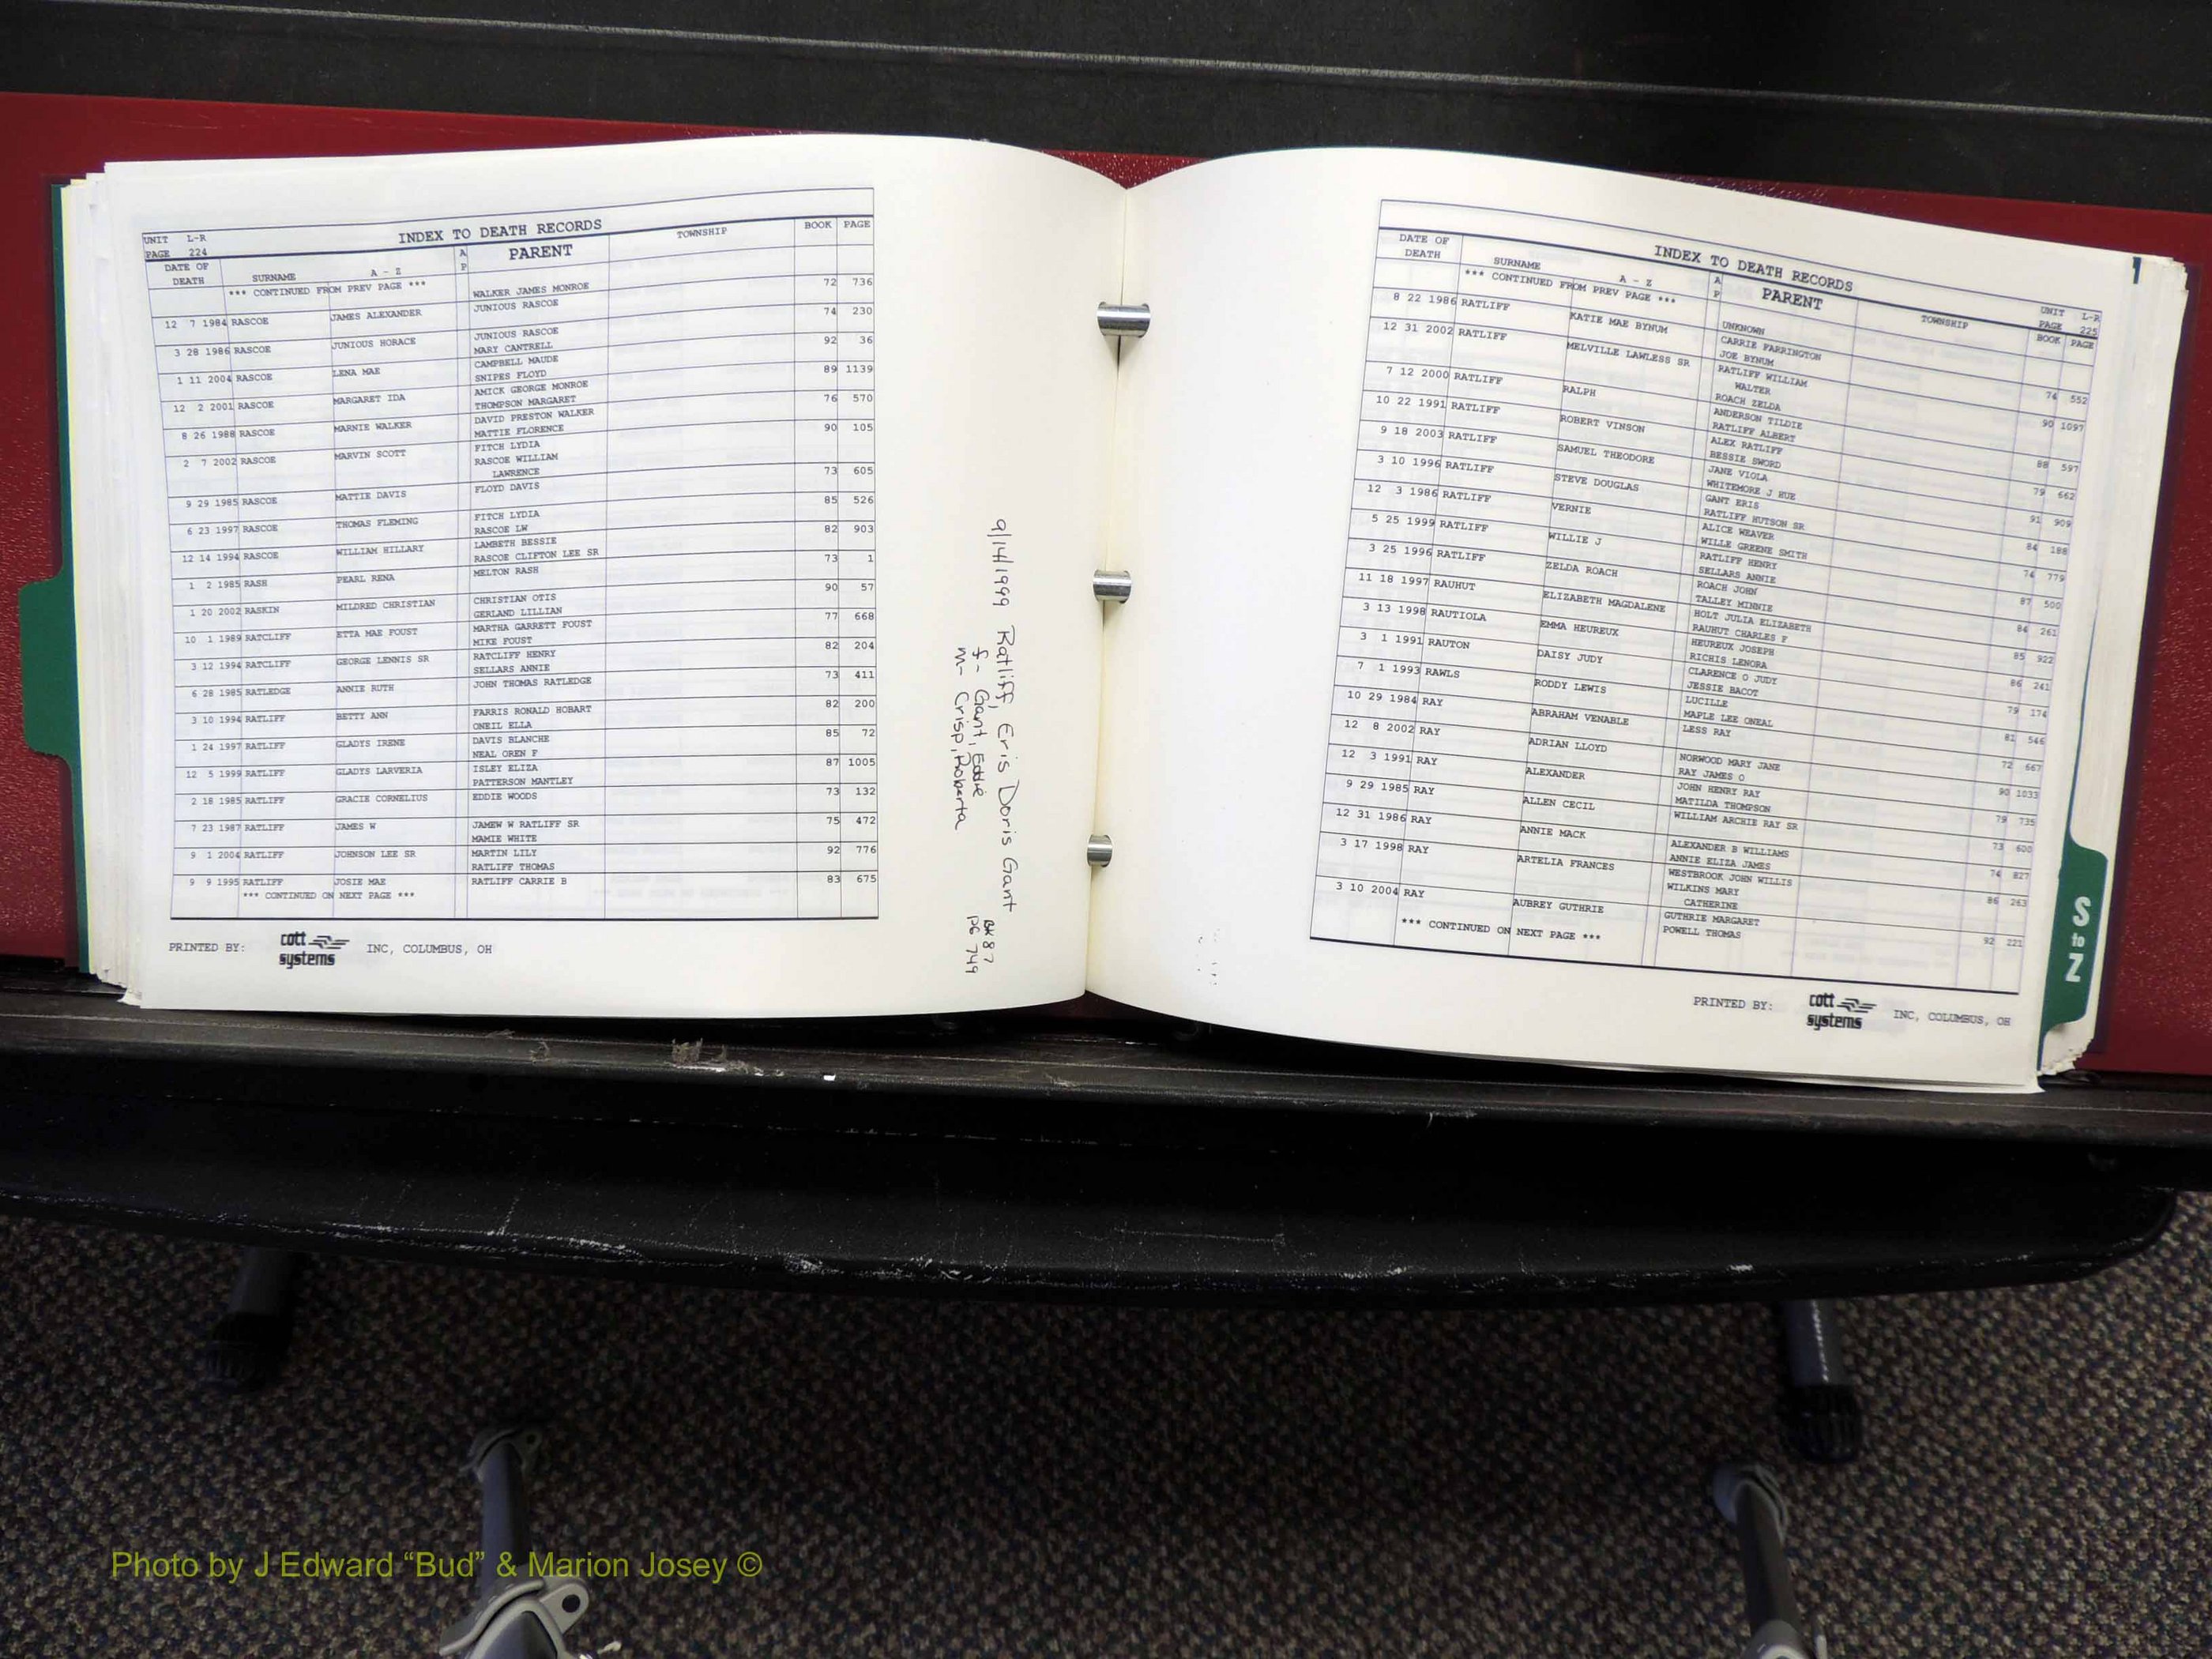 UNIT L-R
PAGE 224
INDEX TO DEATH RECORDS
DATE OF DEATH SURNAME A - Z A P PARENT TOWNSHIP BOOK PAGE
*** CONTINUED FROM PREV PAGE *** WALKER JAMES MONROE 72 736
12 7 1984 RASCOE JAMES ALEXANDER JUNIOUS RASCOE 74 230
JUNIOUS RASCOE
3 28 1986 RASCOE JUNIOUS HORACE MARY CANTRELL 92 36
CAMPBELL MAUDE
1 11 2004 RASCOE LENA MAE SNIPES FLOYD 89 1139
AMICK GEORGE MONROE
12 2 2001 RASCOE MARGARET IDA THOMPSON MARGARET 76 570
DAVID PRESTON WALKER
8 26 1988 RASCOE MARNIE WALKER MATTIE FLORENCE 90 105
FITCH LYDIA
2 7 2002 RASCOE MARVIN SCOTT RASCOE WILLIAM
LAWRENCE 73 605
9 29 1985 RASCOE MATTIE DAVIS FLOYD DAVIS 85 526
FITCH LYDIA
6 23 1997 RASCOE THOMAS FLEMING RASCOE LW 82 903
LAMBETH BESSIE
12 14 1994 RASCOE WILLIAM HILLARY RASCOE CLIFTON LEE SR 73 1
1 2 1985 RASH PEARL RENA MELTON RASH 90 57
CHRISTIAN OTIS
1 20 2002 RASKIN MILDRED CHRISTIAN GERLAND LILLIAN 77 668
MARTHA GARRETT FOUST
10 1 1989 RATCLIFF ETTA MAE FOUST MIKE FOUST 82 204
RATCLIFF HENRY
3 12 1994 RATCLIFF GEORGE LENNIS SR SELLARS ANNIE 73 411
6 28 1985 RATLEDGE ANNIE RUTH JOHN THOMAS RATLEDGE 82 200
FARRIS RONALD HOBART
3 10 1994 RATLIFF BETTY ANN ONEIL ELLA 85 72
DAVIS BLANCHE
1 24 1997 RATLIFF GLADYS IRENE NEAL OREN F 87 1005
ISLEY ELIZA
12 5 1999 RATLIFF GLADYS LARVERIA PATTERSON MANTLEY 73 132
2 18 1985 RATLIFF GRACIE CORNELIUS EDDIE WOODS 75 472
7 23 1987 RATLIFF JAMES W JAMEW W RATLIFF SR
MAMIE WHITE 92 776
9 1 2004 RATLIFF JOHNSON LEE SR MARTIN LILY
RATLIFF THOMAS
9 9 1995 RATLIFF JOSIE MAE RATLIFF CARRIE B 83 675
*** CONTINUED ON NEXT PAGE ***
PRINTED BY: cott systems INC, COLUMBUS, OH
9/14/1999 Ratliff, Eris Doris Gant
f- Gant, Eddie
m- Crisp, Roberta
BK 87
PG 749
INDEX TO DEATH RECORDS
UNIT L-R
PAGE 225
DATE OF DEATH SURNAME A - Z A P PARENT TOWNSHIP BOOK PAGE
*** CONTINUED FROM PREV PAGE *** UNKNOWN
8 22 1986 RATLIFF KATIE MAE BYNUM CARRIE FARRINGTON
JOE BYNUM 74 552
12 31 2002 RATLIFF MELVILLE LAWLESS SR RATLIFF WILLIAM
WALTER
ROACH ZELDA 90 1097
7 12 2000 RATLIFF RALPH ANDERSON TILDIE
RATLIFF ALBERT 88 597
10 22 1991 RATLIFF ROBERT VINSON ALEX RATLIFF
BESSIE SWORD 79 662
9 18 2003 RATLIFF SAMUEL THEODORE JANE VIOLA
WHITEMORE J HUE 91 909
3 10 1996 RATLIFF STEVE DOUGLAS GANT ERIS
RATLIFF HUTSON SR 84 188
12 3 1986 RATLIFF VERNIE ALICE WEAVER
WILLE GREENE SMITH 74 779
5 25 1999 RATLIFF WILLIE J RATLIFF HENRY
SELLARS ANNIE 87 500
3 25 1996 RATLIFF ZELDA ROACH ROACH JOHN
TALLEY MINNIE 84 261
11 18 1997 RAUHUT ELIZABETH MAGDALENE HOLT JULIA ELIZABETH
RAUHUT CHARLES F 85 922
3 13 1998 RAUTIOLA EMMA HEUREUX HEUREUX JOSEPH
RICHIS LENORA 86 241
3 1 1991 RAUTON DAISY JUDY CLARENCE O JUDY
JESSIE BACOT 79 174
7 1 1993 RAWLS RODDY LEWIS LUCILLE
MAPLE LEE ONEAL 81 546
10 29 1984 RAY ABRAHAM VENABLE LESS RAY 72 667
12 8 2002 RAY ADRIAN LLOYD NORWOOD MARY JANE
RAY JAMES O 90 1033
12 3 1991 RAY ALEXANDER JOHN HENRY RAY
MATILDA THOMPSON 79 735
9 29 1985 RAY ALLEN CECIL WILLIAM ARCHIE RAY SR 73 600
12 31 1986 RAY ANNIE MACK ALEXANDER B WILLIAMS
ANNIE ELIZA JAMES 74 827
3 17 1998 RAY ARTELIA FRANCES WESTBROOK JOHN WILLIS
WILKINS MARY
CATHERINE 86 263
3 10 2004 RAY AUBREY GUTHRIE GUTHRIE MARGARET
POWELL THOMAS 92 221
*** CONTINUED ON NEXT PAGE ***
PRINTED BY: cott systems INC, COLUMBUS, OH
S
to
Z
Photo by J Edward “Bud” & Marion Josey ©